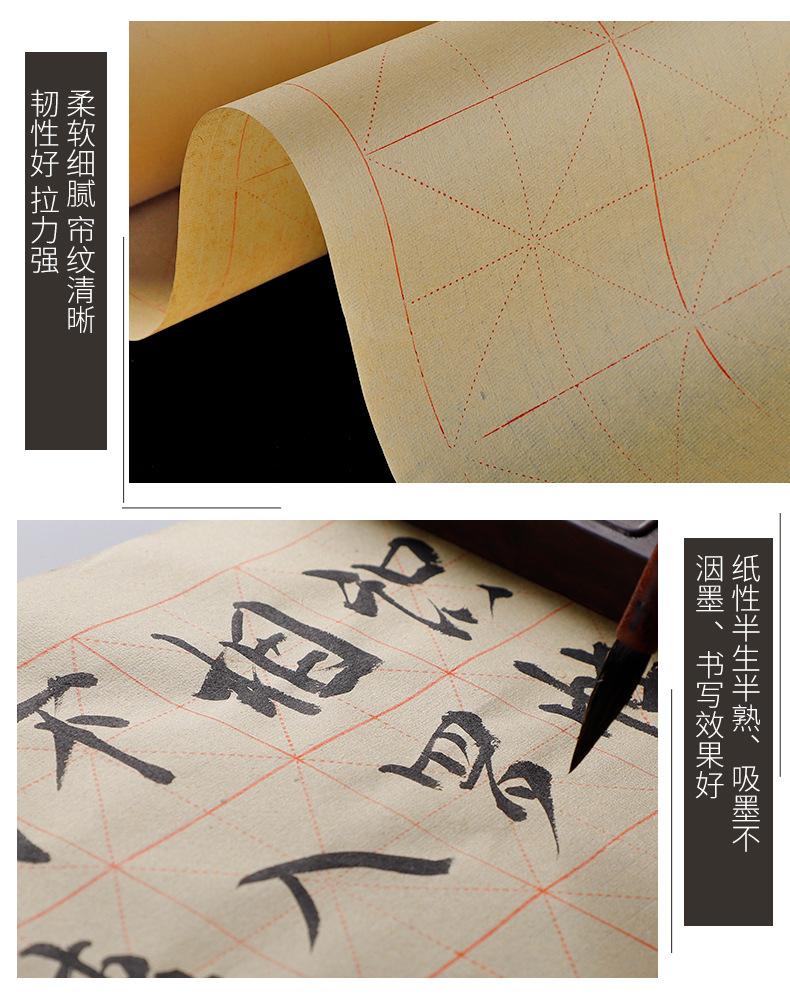 柔软细腻 帘纹清晰
韧性好 拉力强
纸性半生半熟、吸墨不
洇墨、书写效果好
不相识
入罗